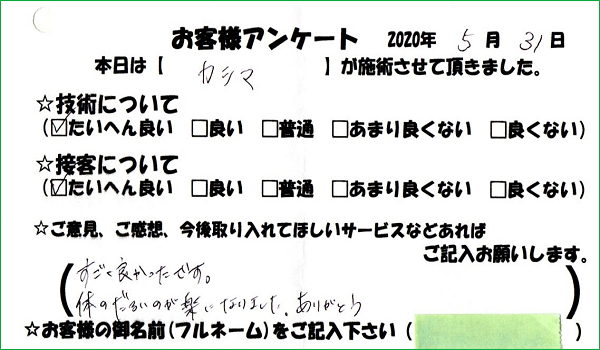 お客様アンケート 2020年 5 月 31 日
本日は【 カシマ 】が施術させて頂きました。
☆技術について
(☑たいへん良い □良い □普通 □あまり良くない □良くない)
☆接客について
(☑たいへん良い □良い □普通 □あまり良くない □良くない)
☆ご意見、ご感想、今後取り入れてほしいサービスなどあれば
ご記入お願いします。
(すごく良かったです。
体のだるいのが楽になりました、ありがとう)
☆お客様の御名前(フルネーム)をご記入下さい( )